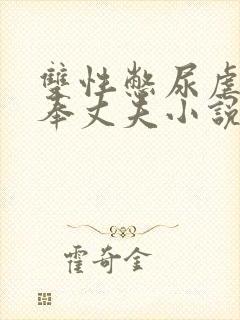 雙性憋尿虐
奉丈夫小說
霍奇金